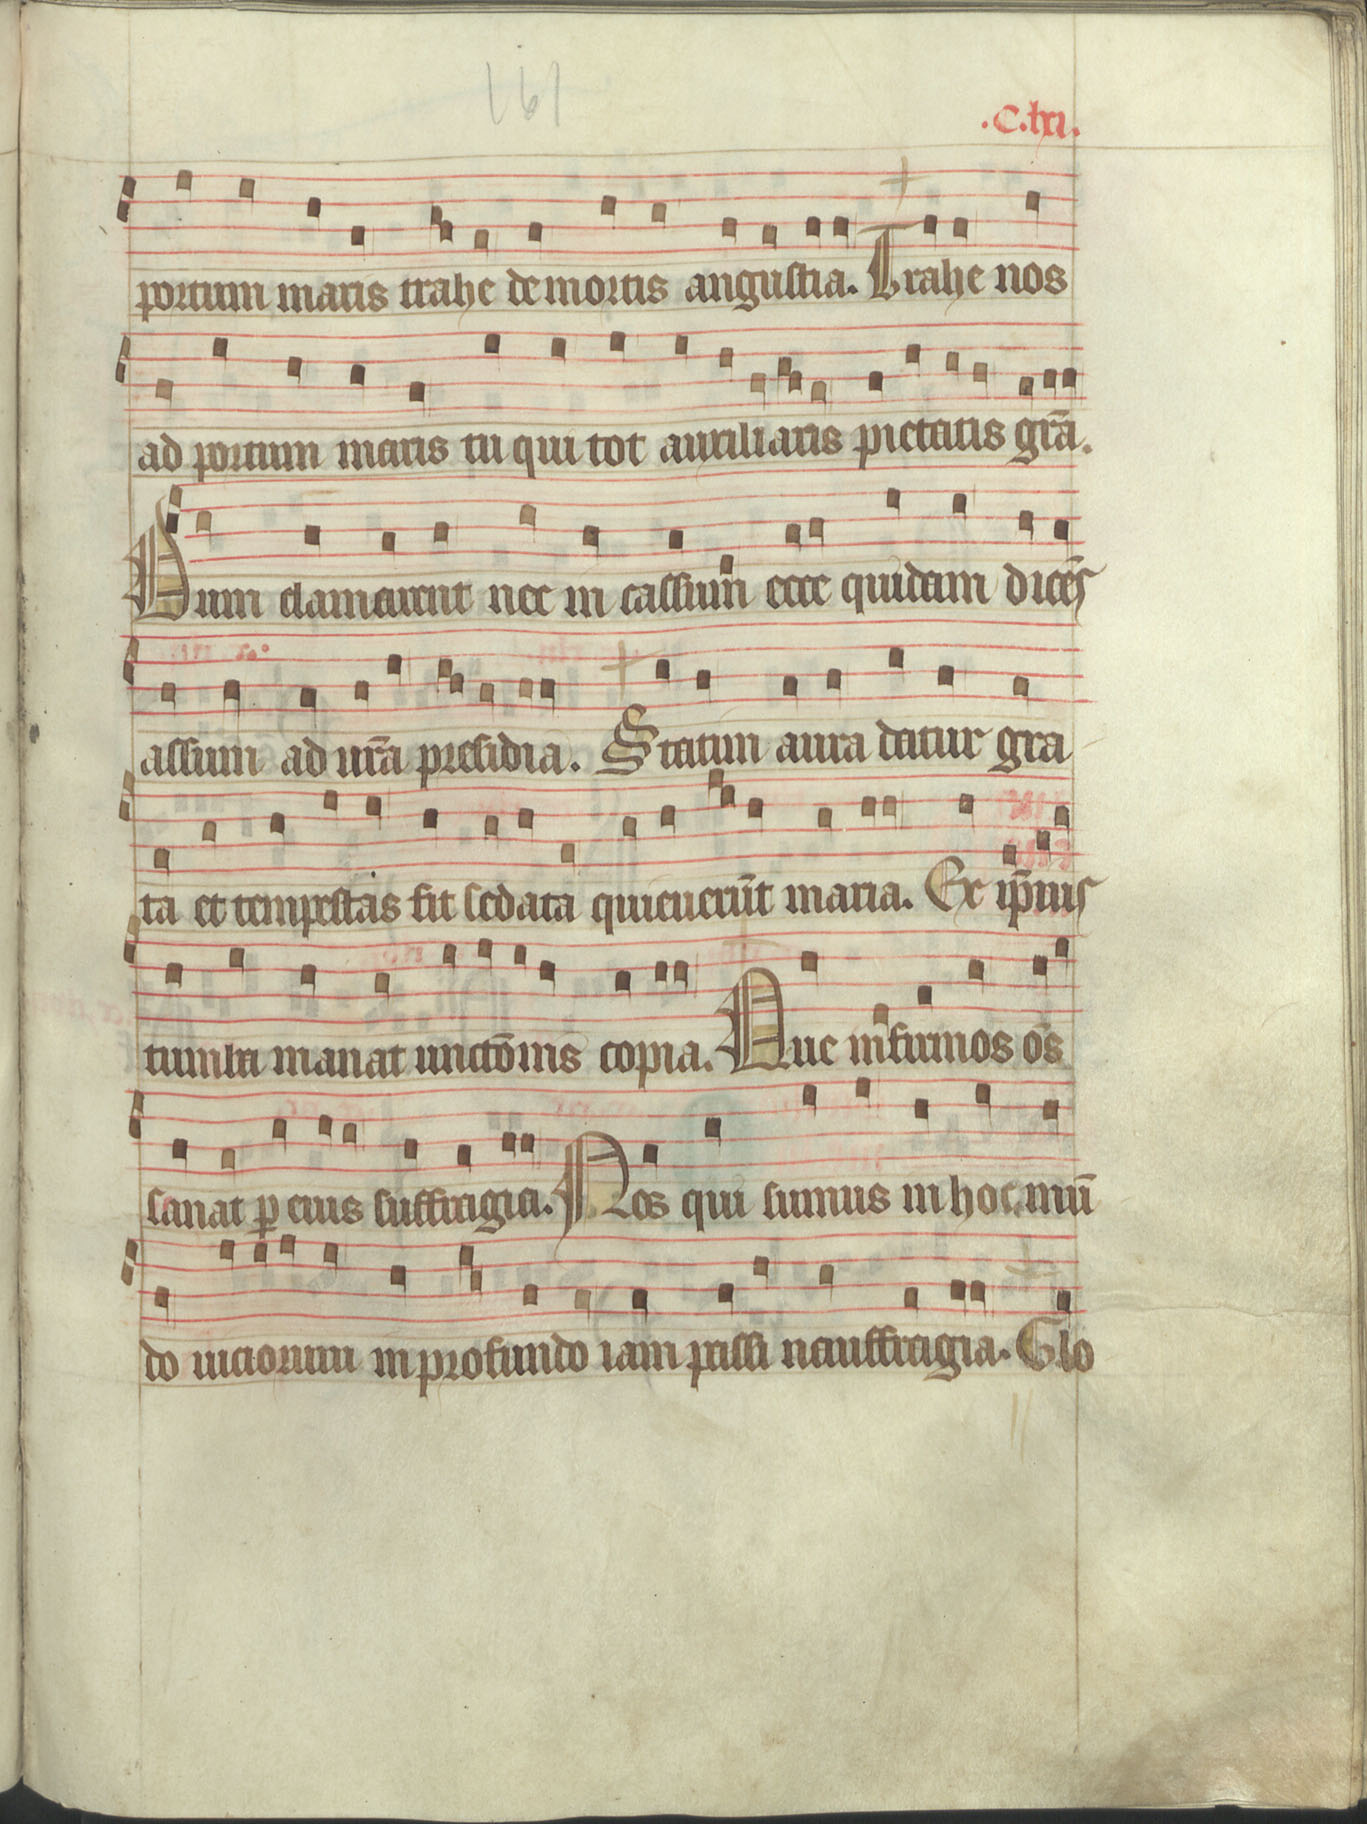 161
.C.lxi.
portum maris trahe de mortis angustia. Trahe nos
ad portum maris tu qui tot auxiliaris pietatis grā.
Dum clamarent nec in cassum ecce quidam dicēs
assum ad urā presidia. Statim aura datur gra
ta et tempestas fit sedata quieuerūt maria. Ex ip̄ius
tumba manat unctōnis copia. Que infirmos oēs
sanat p eius suffragia. Nos qui sumus in hoc mū
do uiciorum in profundo iam passi naufragia. Glo